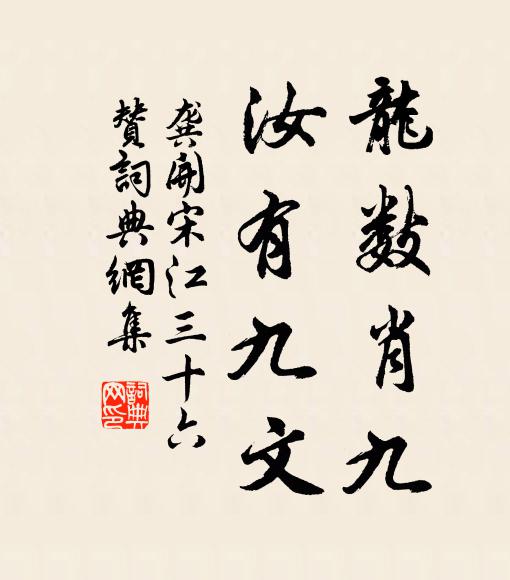 龍數肖九
汝有九文
龔開宋江三十六
贊詞典網集
詞典網印